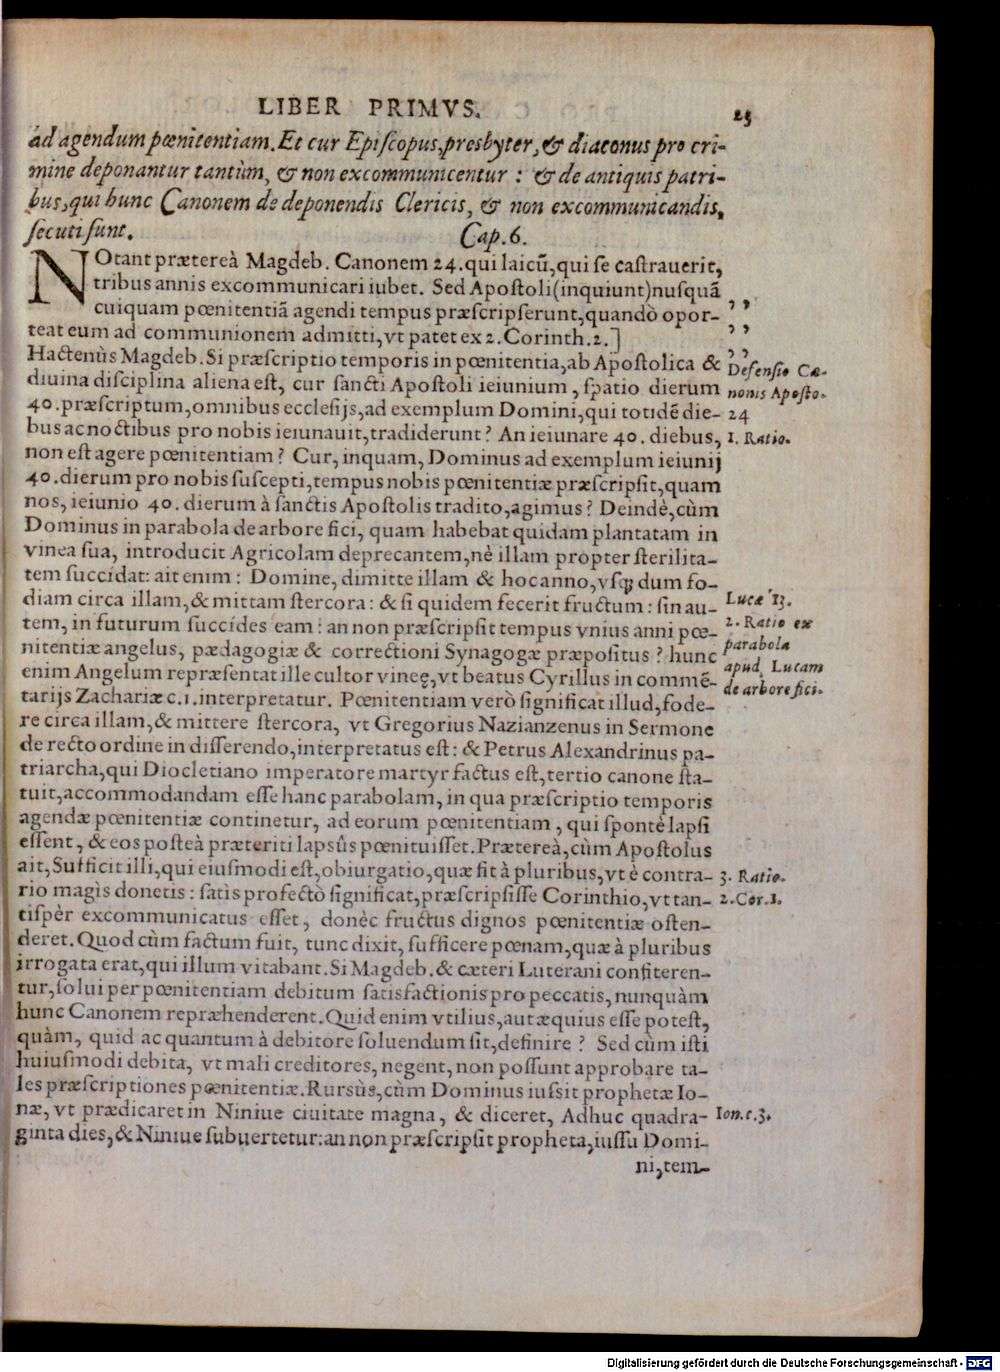 LIBER PRIMVS. 23
ad agendum pœnitentiam. Et cur Epiſcopus, presbyter, & diaconus pro cri-
mine deponantur tantùm, & non excommunicentur : & de antiquis patri-
bus, qui hunc Canonem de deponendis Clericis, & non excommunicandis,
ſecuti ſunt. Cap. 6.
NOtant prætereà Magdeb. Canonem 24. qui laicũ, qui ſe caſtrauerit,
tribus annis excommunicari iubet. Sed Apoſtoli (inquiunt) nuſquã
cuiquam pœnitentiã agendi tempus præſcripſerunt, quandò opor-
teat eum ad communionem admitti, vt patet ex 2. Corinth. 2. ]
Hactenùs Magdeb. Si præſcriptio temporis in pœnitentia, ab Apoſtolica &
diuina diſciplina aliena eſt, cur ſancti Apoſtoli ieiunium, ſpatio dierum
40. præſcriptum, omnibus eccleſijs, ad exemplum Domini, qui totidẽ die-
bus ac noctibus pro nobis ieiunauit, tradiderunt? An ieiunare 40. diebus,
non eſt agere pœnitentiam? Cur, inquam, Dominus ad exemplum ieiunij
40. dierum pro nobis ſuſcepti, tempus nobis pœnitentiæ præſcripſit, quam
nos, ieiunio 40. dierum à ſanctis Apoſtolis tradito, agimus? Deindè, cùm
Dominus in parabola de arbore fici, quam habebat quidam plantatam in
vinea ſua, introducit Agricolam deprecantem, nè illam propter ſterilita-
tem ſuccídat: ait enim : Domine, dimitte illam & hoc anno, vſq; dum fo-
diam circa illam, & mittam ſtercora : & ſi quidem fecerit fructum : ſin au-
tem, in futurum ſuccídes eam : an non præſcripſit tempus vnius anni pœ-
nitentiæ angelus, pædagogiæ & correctioni Synagogæ præpoſitus ? hunc
enim Angelum repræſentat ille cultor vineę, vt beatus Cyrillus in commẽ-
tarijs Zachariæ c. 1. interpretatur. Pœnitentiam verò ſignificat illud, fode-
re circa illam, & mittere ſtercora, vt Gregorius Nazianzenus in Sermone
de recto ordine in diſſerendo, interpretatus eſt: & Petrus Alexandrinus pa-
triarcha, qui Diocletiano imperatore martyr factus eſt, tertio canone ſta-
tuit, accommodandam eſſe hanc parabolam, in qua præſcriptio temporis
agendæ pœnitentiæ continetur, ad eorum pœnitentiam, qui ſpontè lapſi
eſſent, & eos poſteà præteriti lapsûs pœnituiſſet. Prætereà, cùm Apoſtolus
ait, Sufficit illi, qui eiuſmodi eſt, obiurgatio, quæ fit à pluribus, vt è contra-
rio magìs donetis : ſatìs profectò ſignificat, præſcripſiſſe Corinthio, vt tan-
tiſpèr excommunicatus eſſet, donèc fructus dignos pœnitentiæ oſten-
deret. Quod cùm factum fuit, tunc dixit, ſufficere pœnam, quæ à pluribus
irrogata erat, qui illum vitabant. Si Magdeb. & cæteri Luterani confiteren-
tur, ſolui per pœnitentiam debitum ſatisfactionis pro peccatis, nunquàm
hunc Canonem repræhenderent. Quid enim vtilius, aut æquius eſſe poteſt,
quàm, quid ac quantum à debitore ſoluendum ſit, definire ? Sed cùm iſti
huiuſmodi debita, vt mali creditores, negent, non poſſunt approbare ta-
les præſcriptiones pœnitentiæ. Rursùs, cùm Dominus iuſsit prophetæ Io-
næ, vt prædicaret in Niniue ciuitate magna, & diceret, Adhuc quadra-
ginta dies, & Niniue ſubuertetur: an non præſcripſit propheta, iuſſu Domi-
ni, tem-
,,
,,
,,
Defenſio Ca-
nonis Apoſto-
24
1. Ratio.
Lucæ 13.
2. Ratio ex
parabola
apud Lucam
de arbore fici.
3. Ratio.
2. Cor. 1.
Ion. c. 3.
Digitalisierung gefördert durch die Deutsche Forschungsgemeinschaft - DFG